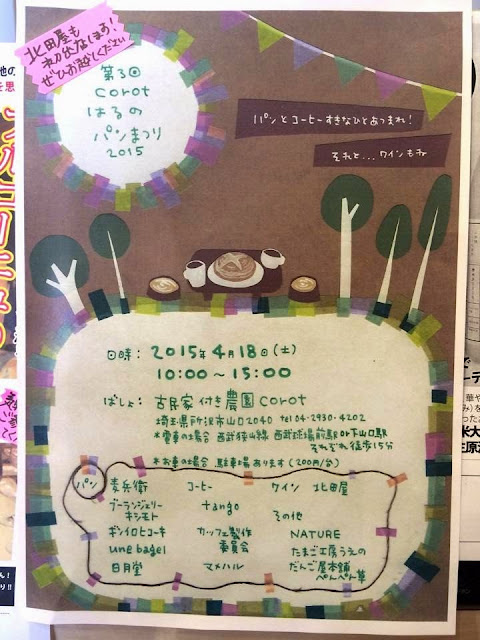 北田屋も
初出店します!
ぜひお越しください
第3回
corot
はるの
パンまつり
2015
パンとコーヒーすきなひとあつまれ!
それと...ワインもね
日時: 2015年4月18日(土)
10:00~15:00
ばしょ: 古民家付き農園corot
埼玉県所沢市山口2040 tel 04-2930-4202
*電車の場合 西武狭山線 西武球場前駅or下山口駅
それぞれ徒歩15分
*お車の場合 駐車場あります(200円/台)
パン 麦兵衛 コーヒー ワイン 北田屋
ブーランジェリー tango
キシモト その他
ギンイロヒコーキ カッフェ製作 NATURE
une bagel 委員会 たまご工房うえの
日月堂 マメハル だんご屋本舗
ぺんぺん草